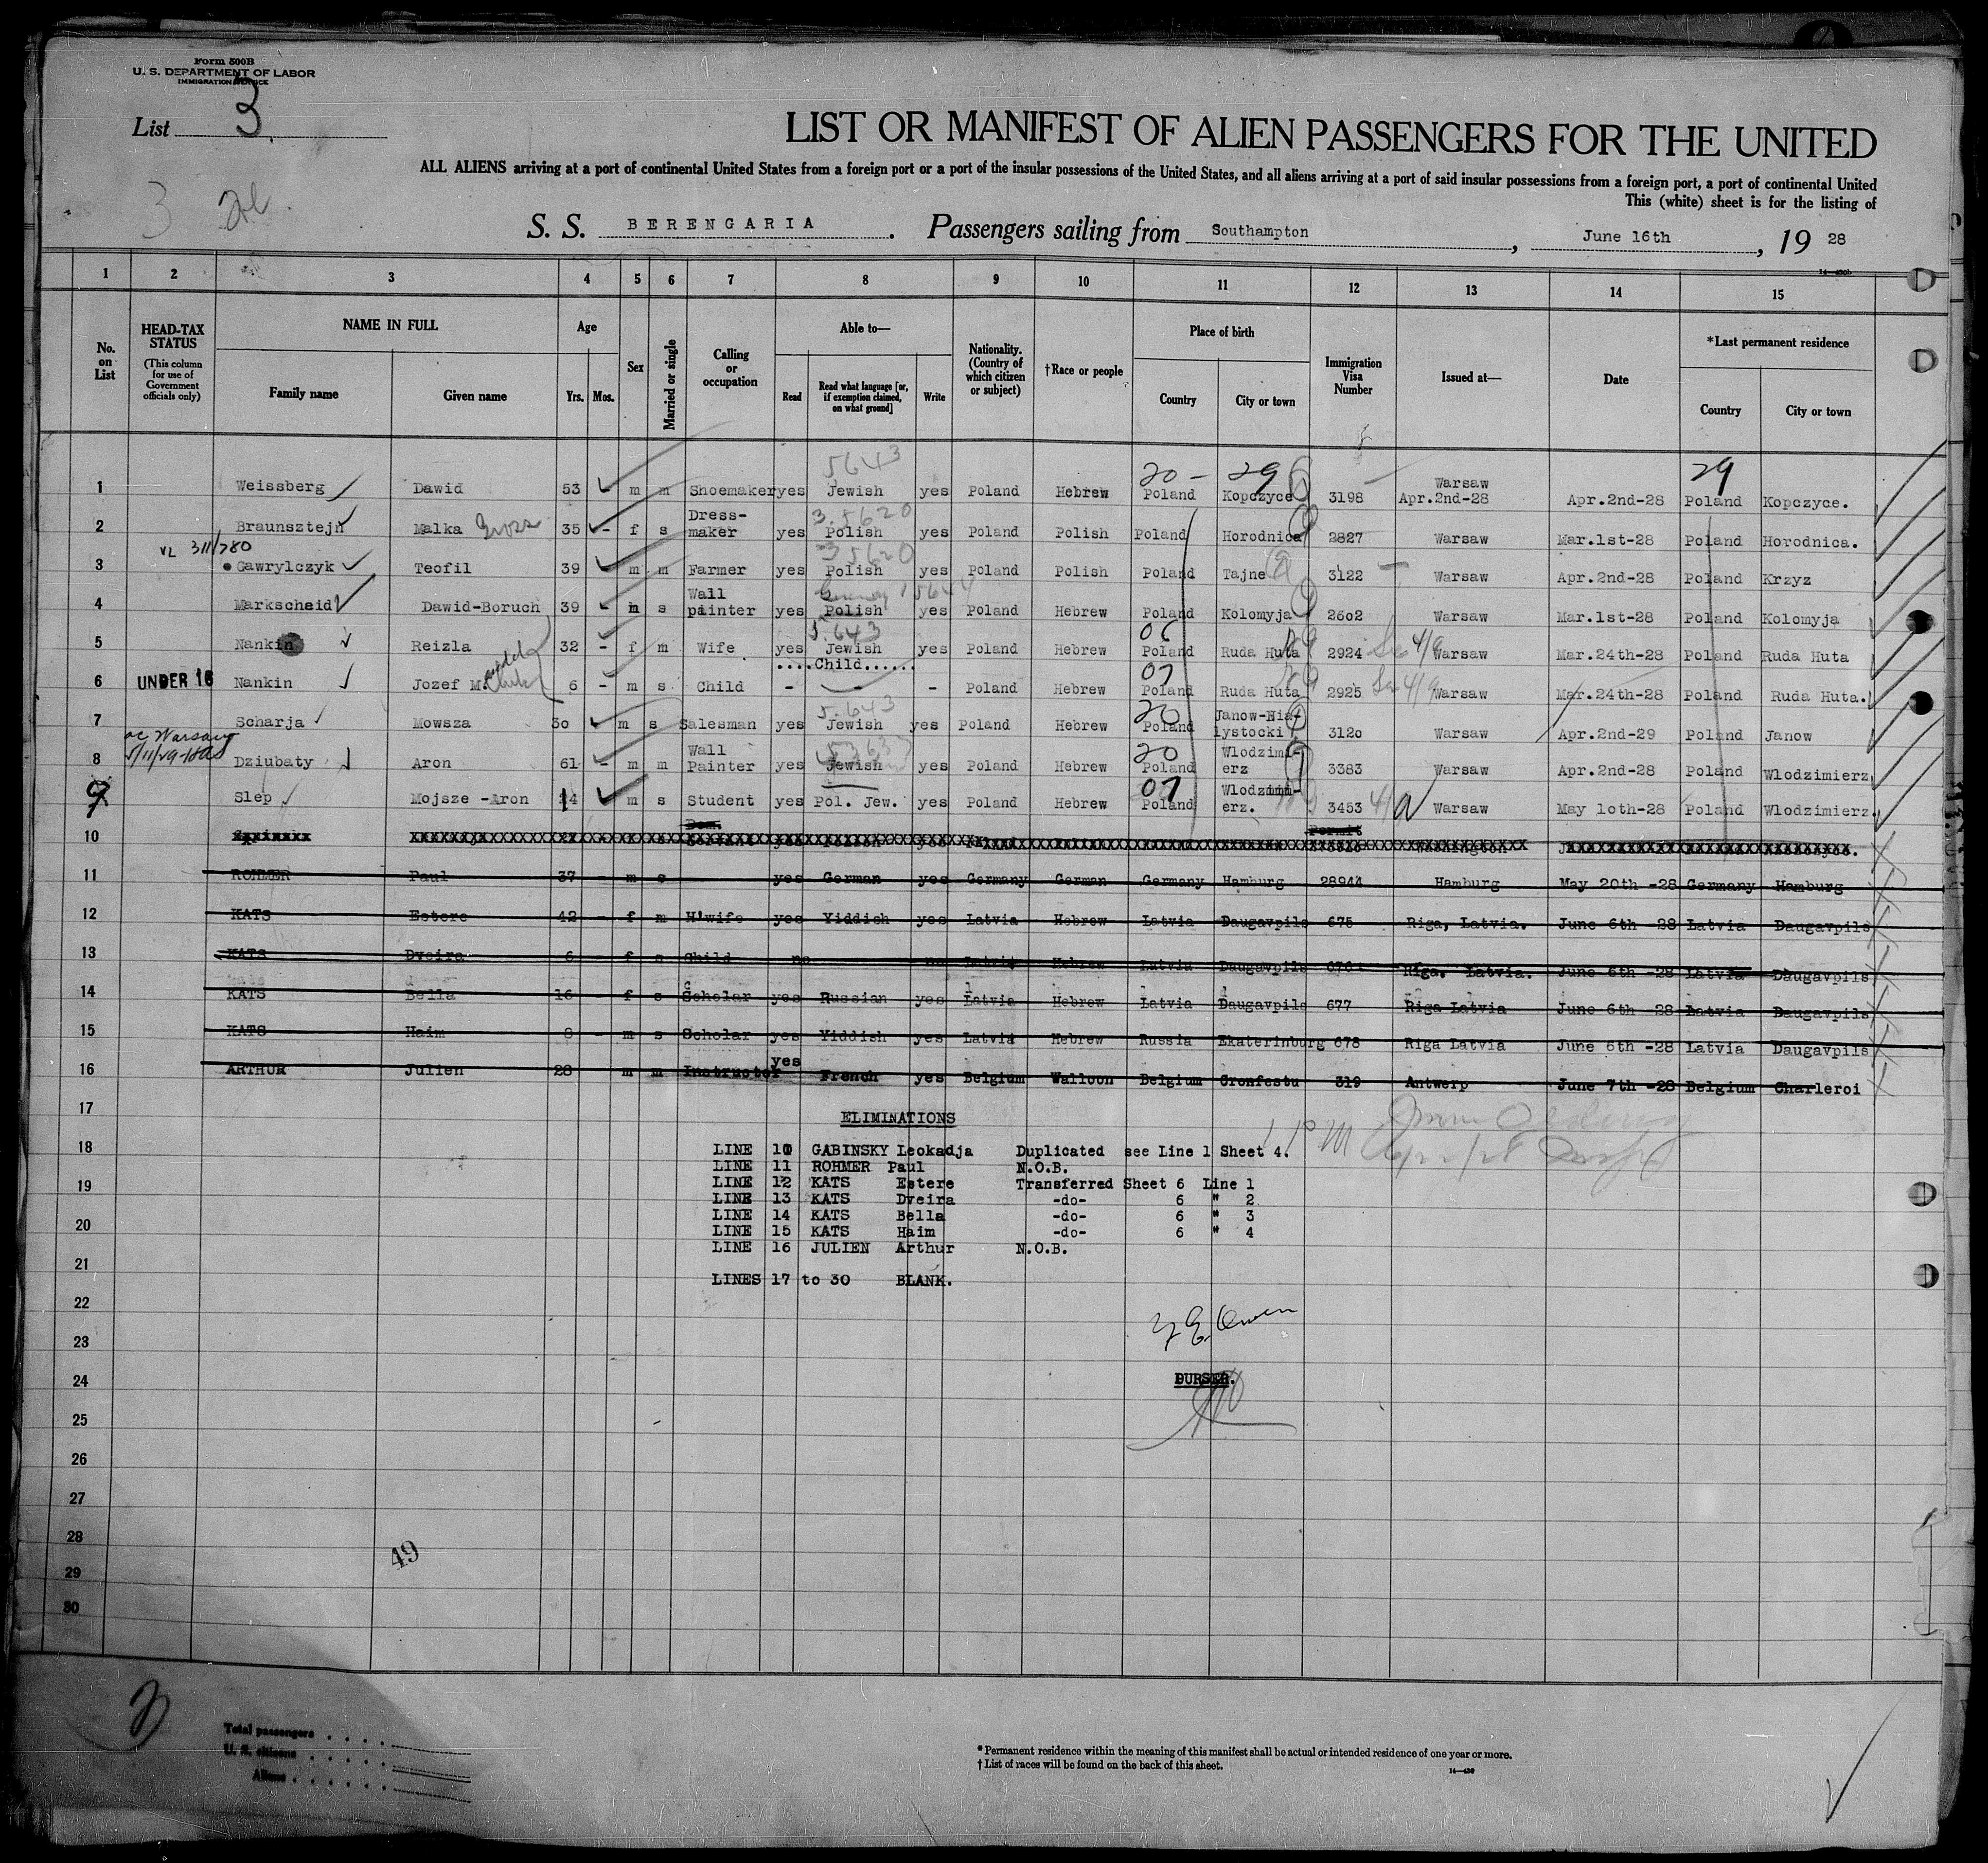 Form 500B
U. S. DEPARTMENT OF LABOR
IMMIGRATION SERVICE
List 3
3
LIST OR MANIFEST OF ALIEN PASSENGERS FOR THE UNITED
ALL ALIENS arriving at a port of continental United States from a foreign port or a port of the insular possessions of the United States, and all aliens arriving at a port of said insular possessions from a foreign port, a port of continental United
This (white) sheet is for the listing of
S. S. BERENGARIA. Passengers sailing from Southampton, June 16th, 19 28
1 2 3 4 5 6 7 8 9 10 11 12 13 14 15
No. on List
HEAD-TAX STATUS
(This column for use of Government officials only)
NAME IN FULL
Family name Given name
Age
Yrs. Mos.
Sex
Married or single
Calling or occupation
Able to—
Read Read what language [or, if exemption claimed, on what ground] Write
Nationality. (Country of which citizen or subject)
†Race or people
Place of birth
Country City or town
Immigration Visa Number
Issued at—
Date
*Last permanent residence
Country City or town
5643 20 - 29 29
1 Weissberg Dawid 53 - m m Shoemaker yes Jewish yes Poland Hebrew Poland Kopczyce 3198 Warsaw Apr.2nd-28 Apr.2nd-28 Poland Kopczyce.
3.5620
2 Braunsztejn Malka 35 - f s Dress-maker yes Polish yes Poland Polish Poland Horodnica 2827 Warsaw Mar.1st-28 Poland Horodnica.
VL 311/780 35620
3 Gawrylczyk Teofil 39 m m Farmer yes Polish yes Poland Polish Poland Tajne 3122 Warsaw Apr.2nd-28 Poland Krzyz
4 Markscheid Dawid-Boruch 39 - m s Wall painter yes Polish yes Poland Hebrew Poland Kolomyja 2602 Warsaw Mar.1st-28 Poland Kolomyja
5.643 06
5 Nankin Reizla 32 - f m Wife yes Jewish yes Poland Hebrew Poland Ruda Huta 2924 4/9 Warsaw Mar.24th-28 Poland Ruda Huta
....Child...... 07
6 UNDER 16 Nankin Jozef M. 6 - m s Child - - - Poland Hebrew Poland Ruda Huta 2925 4/9 Warsaw Mar.24th-28 Poland Ruda Huta.
5.643 20
7 Scharja Mowsza 30 m s Salesman yes Jewish yes Poland Hebrew Poland Janow-Bia-lystocki 3120 Warsaw Apr.2nd-29 Poland Janow
oc Warsaw
5/11/29 20
8 Dziubaty Aron 61 - m m Wall Painter yes Jewish yes Poland Hebrew Poland Wlodzimi-erz 3383 Warsaw Apr.2nd-28 Poland Wlodzimierz
07
9 Slep Mojsze -Aron 14 m s Student yes Pol. Jew. yes Poland Hebrew Poland Wlodzimi-erz. 3453 Warsaw May 10th-28 Poland Wlodzimierz.
10 Dom. Servant yes yes Permit Washington
11 ROHMER Paul 37 - m s yes German yes Germany German Germany Hamburg 28944 Hamburg May 20th -28 Germany Hamburg
12 KATS Estere 42 - f m H'wife yes Yiddish yes Latvia Hebrew Latvia Daugavpils 675 Riga, Latvia. June 6th -28 Latvia Daugavpils
13 KATS Dveira 6 - f s Child no no Latvia Hebrew Latvia Daugavpils 676 Riga. Latvia. June 6th -28 Latvia Daugavpils
14 KATS Bella 16 - f s Scholar yes Russian yes Latvia Hebrew Latvia Daugavpils 677 Riga Latvia June 6th -28 Latvia Daugavpils
15 KATS Haim 8 - m s Scholar yes Yiddish yes Latvia Hebrew Russia Ekaterinburg 678 Riga Latvia June 6th -28 Latvia Daugavpils
16 ARTHUR Julien 28 m m Instructor yes French yes Belgium Walloon Belgium Gronfestu 319 Antwerp June 7th -28 Belgium Charleroi
17
ELIMINATIONS
18
LINE 10 GABINSKY Leokadja Duplicated see Line 1 Sheet 4.
LINE 11 ROHMER Paul N.O.B.
19
LINE 12 KATS Estere Transferred Sheet 6 Line 1
LINE 13 KATS Dveira -do- 6 " 2
20
LINE 14 KATS Bella -do- 6 " 3
LINE 15 KATS Haim -do- 6 " 4
LINE 16 JULIEN Arthur N.O.B.
21
LINES 17 to 30 BLANK.
22
23
24
PURSER.
25
26
27
28
49
29
30
Total passengers . . . .
U. S. citizens . . . . .
Aliens . . . . . .
* Permanent residence within the meaning of this manifest shall be actual or intended residence of one year or more.
† List of races will be found on the back of this sheet.
14—430